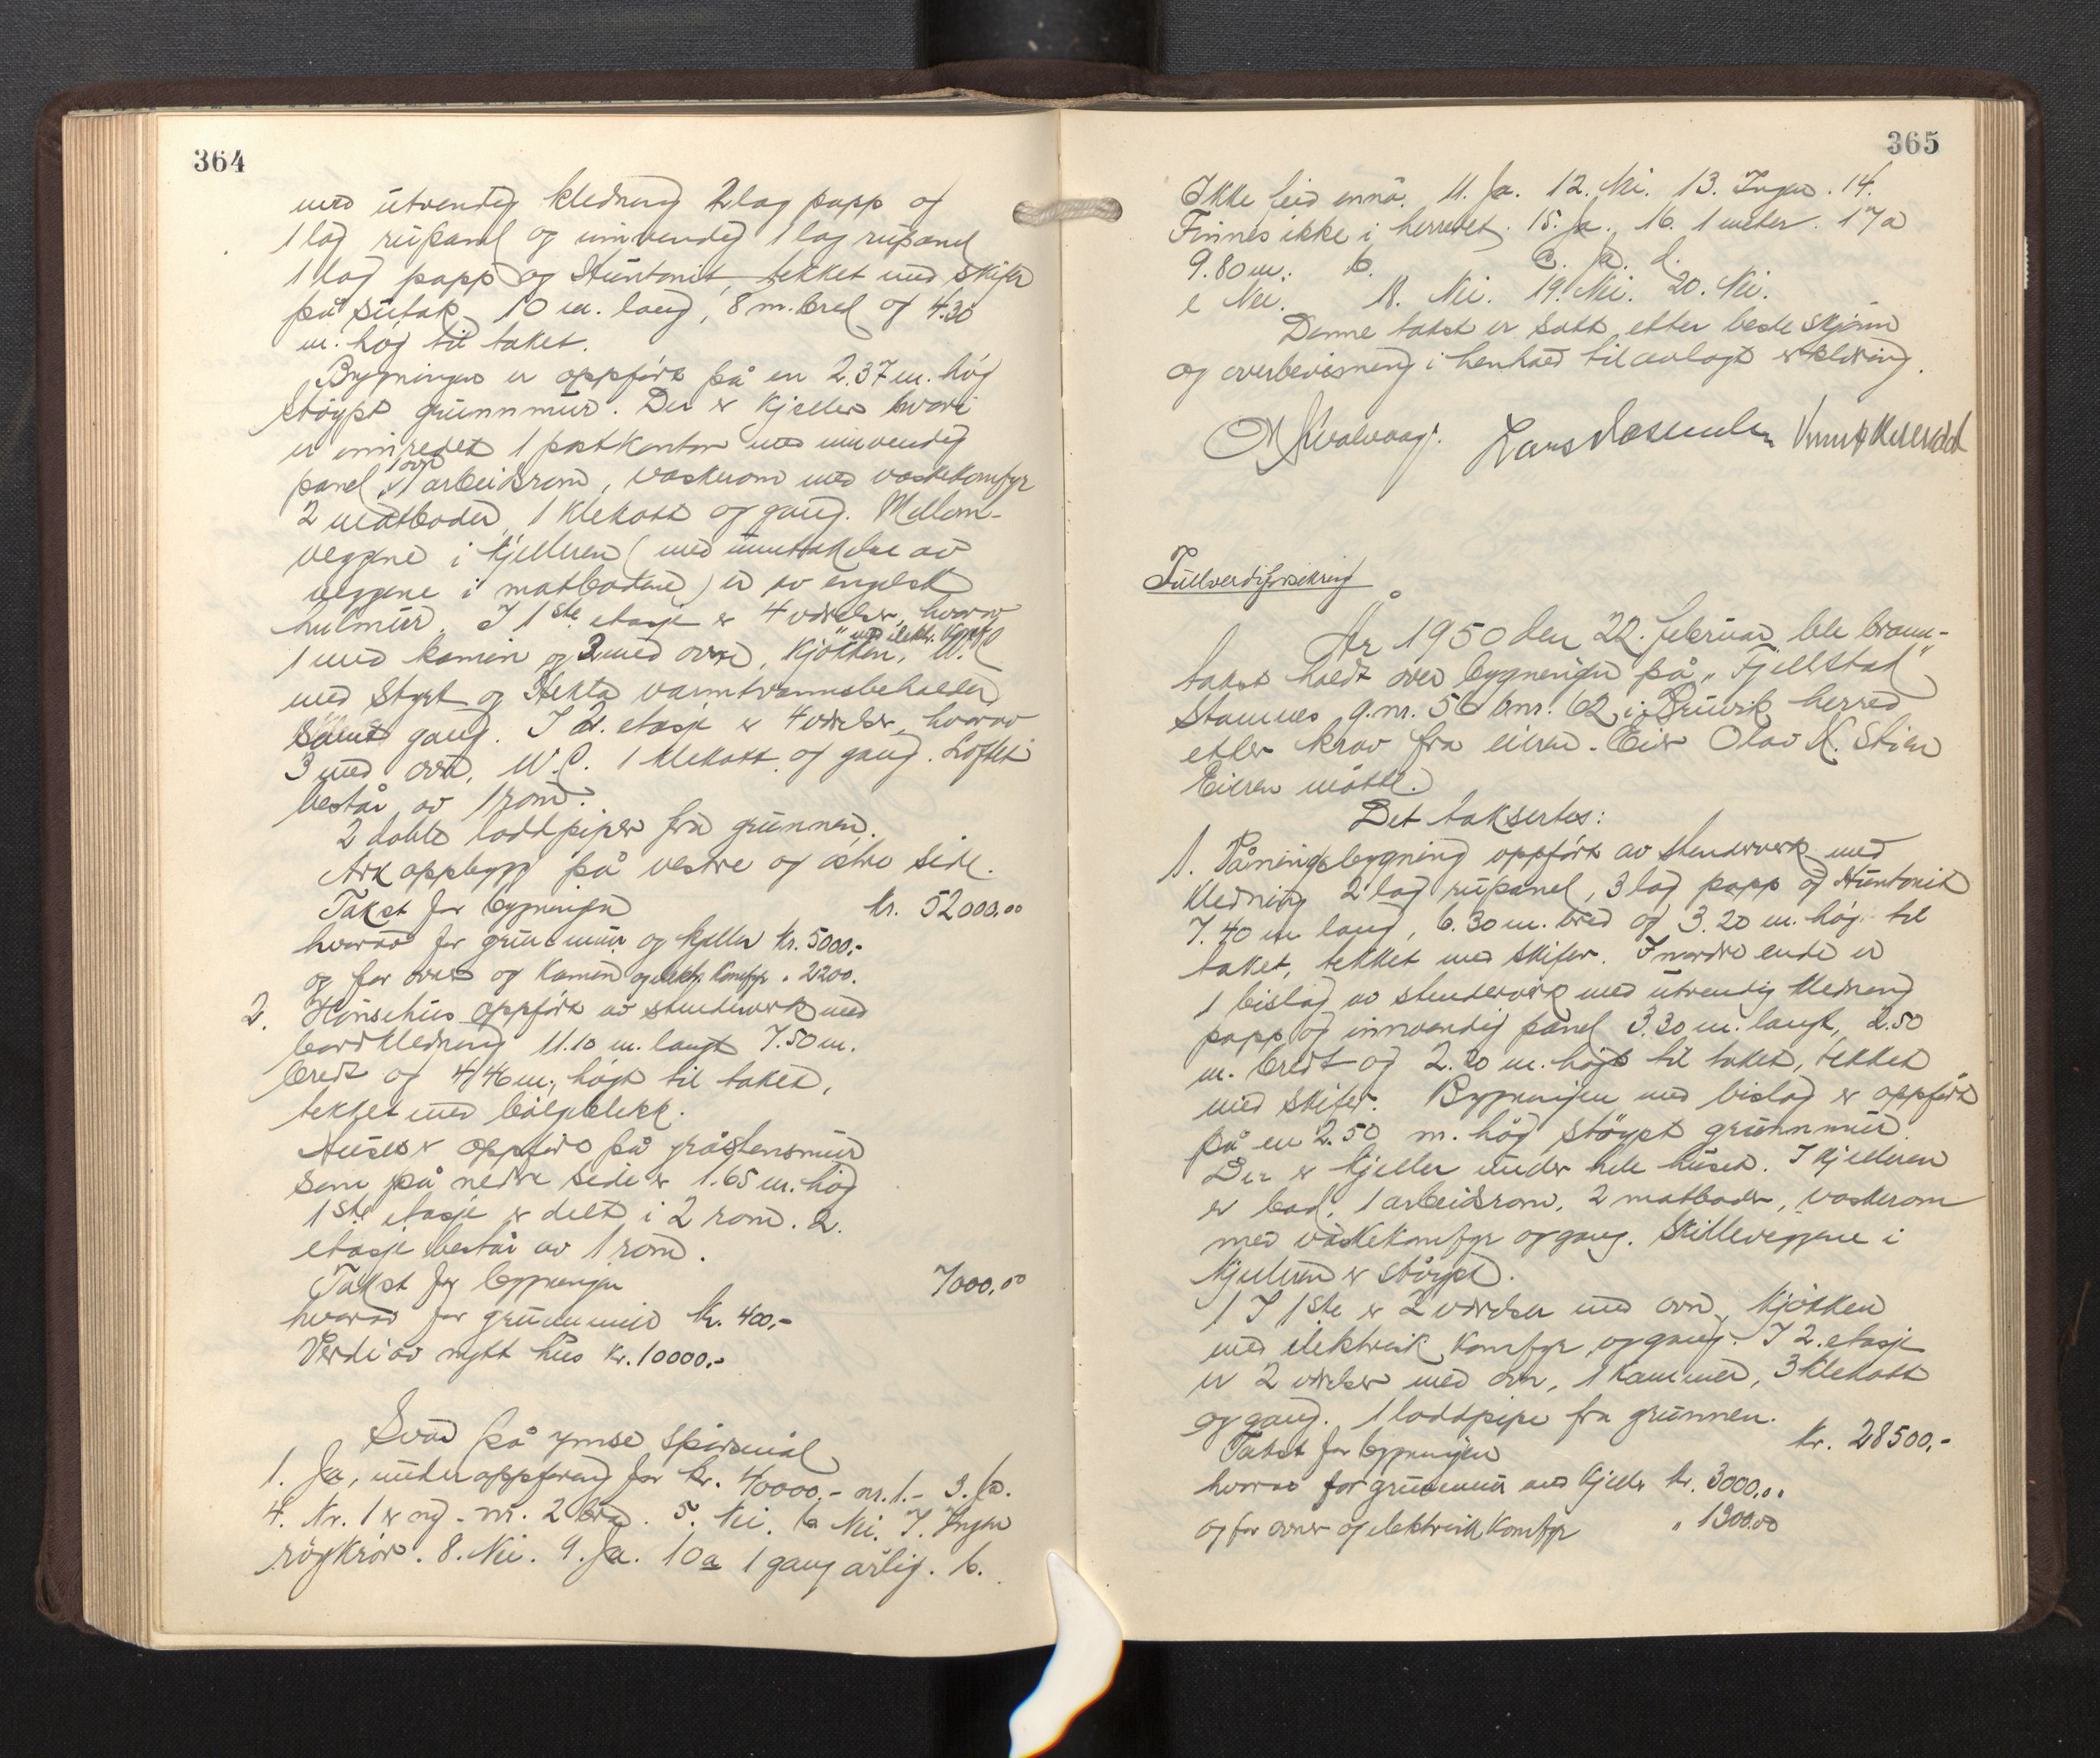 364
med utvendig kledning 2 lag papp og
1 lag rupanel og innvendig 1 lag rupanel
1 lag papp og Huntonit, tekket med skifer
på sutak 10 m. lang, 8 m. bred og 4.30
m. høg til taket.
Bygningen er oppført på en 2.37 m. høg
støypt grunnmur. Der er kjeller hvori
er innredet 1 postkontor med innvendig
panel, 1 ovn 1 arbeidsrom, vaskerom med vaskekomfyr
2 matboder, 1 klekott og gang. Mellom-
veggene i kjelleren (med unntakelse av
veggene i matbodene) er av engelsk
hulmur. I 1ste etasje er 4 værelser, hvorav
1 med kamin og 3 med ovn, kjøkken, med elektr. komfyr W.C
med styrt og Hekta varmtvannsbeholder
samt gang. I 2. etasje er 4 værelser, hvorav
3 med ovn, W.C. 1 klekott og gang. Loftet
består av 1 rom.
2 doble loddpiper fra grunnen.
Ark oppbygg på vestre og østre side.
Takst for bygningen kr. 52000.00
hvorav for grunnmur og kjeller kr. 5000.-
og for ovner og kamin og elektr. komfyr " 2200.
2. Hønsehus oppført av stenderverk med
bordkledning 11.10 m. langt 7.50 m.
bredt og 4.46 m. høgt til taket,
tekket med bølgeblekk.
Huset er oppført på gråstensmur
som på nedre side er 1.65 m. høg
1ste etasje er delt i 2 rom. 2.
etasje består av 1 rom.
Takst for bygningen 7000.00
hvorav for grunnmur kr. 400.-
Verdi av nytt hus kr. 10000.-
Svar på ymse spørsmål
1. Ja, under oppføring for kr. 40000.- nr. 1.- 3. Ja.
4. Nr. 1 er ny - nr. 2 bra. 5. Nei. 6 Nei. 7. Ingen
røykrør. 8. Nei. 9. Ja. 10a 1 gang årlig. b.
365
Ikke feid ennå. 11. Ja. 12. Nei. 13. Ingen. 14.
Finnes ikke i herredet. 15. Ja. 16. 1 meter. 17a
9.80 m. b. c. Ja. d.
e Nei. 18. Nei. 19. Nei. 20. Nei.
Denne takst er satt etter beste skjønn
og overbevisning i henhold til avlagt erklæring.
Lars
Fullverdiforsikring
År 1950 den 22. februar ble brann-
takst holdt over bygningen på "Fjellstad"
Stamnes g.nr. 56 bnr. 62 i Bruvik herred
etter krav fra eieren. Eier Olav K. Stien
Eieren møtte.
Det taksertes:
1. Våningsbygning oppført av stenderverk med
kledning 2 lag rupanel, 3 lag papp og Huntonit
7.40 m lang, 6.30 m. bred og 3.20 m. høg til
taket, tekket med skifer. I nordre ende er
1 bislag av stenderverk med utvendig kledning
papp og innvendig panel 3.30 m. langt, 2.50
m. bredt og 2.20 m. høgt til taket, tekket
med skifer. Bygningen med bislag er oppført
på en 2.50 m. høg støypt grunnmur.
Der er kjeller under hele huset. I kjelleren
er bad, 1 arbeidsrom, 2 matboder, vaskerom
med vaskekomfyr og gang. Skilleveggene i
kjelleren er støypt.
I 1ste er 2 værelser med ovn, kjøkken
med elektrisk komfyr og gang. I 2. etasje
er 2 værelser med ovn, 1 kammer, 3 klekott
og gang. 1 loddpipe fra grunnen.
Takst for bygningen kr. 28500.-
hvorav for grunnmur med kjeller kr. 3000.00
og for ovner og elektrisk komfyr " 1300.00